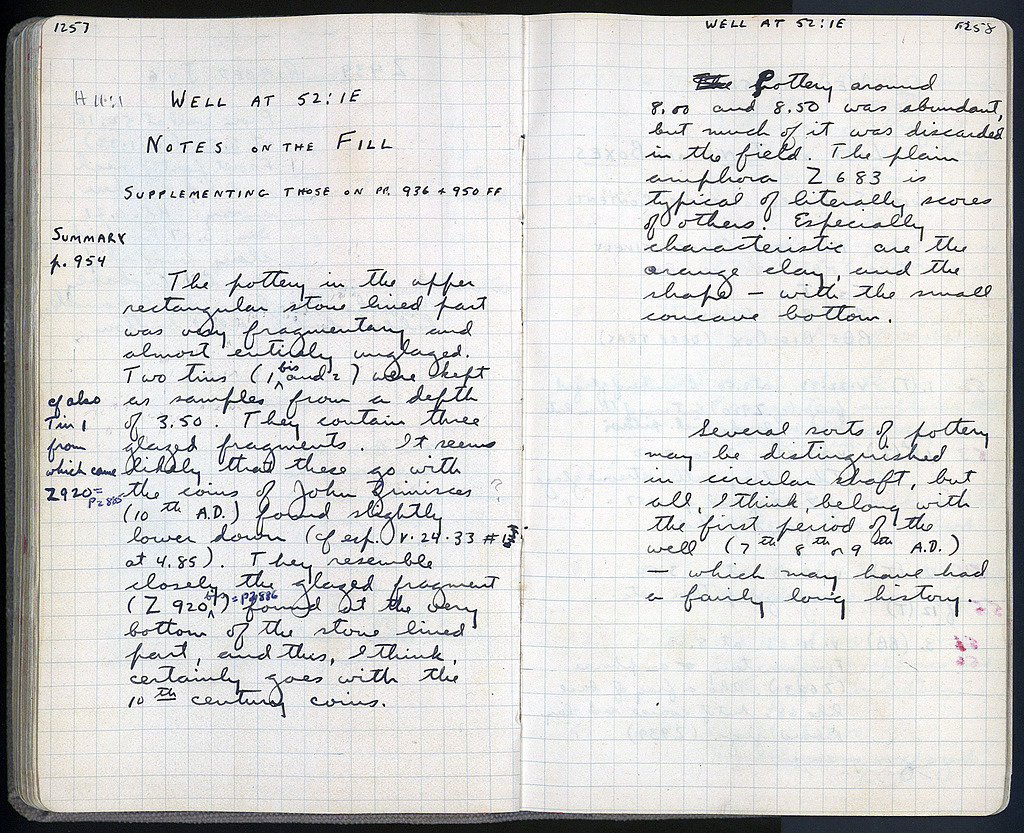 1257
H 11:1
WELL AT 52:1E
NOTES ON THE FILL
SUPPLEMENTING THOSE ON PP. 936 + 950 FF
SUMMARY
p. 954
The pottery in the upper
rectangular stone lined part
was very fragmentary and
almost entirely unglazed.
Two tins (1 bis and 2) were kept
as samples from a depth
of 3.50. They contain three
glazed fragments. It seems
likely that these go with
the coins of John Zimisces ?
(10 th A.D.) found slightly
lower down (cf esp. V. 24. 33 #1
at 4.85). They resemble
closely the glazed fragment
(Z 920 = P2886) found at the very
bottom of the stone lined
part, and this, I think,
certainly goes with the
10 th century coins.
cf also
Tin 1
from
which came
Z920 =
P2885
WELL AT 52:1E
1258
Pottery around
8.00 and 8.50 was abundant,
but much of it was discarded
in the field. The plain
amphora Z 683 is
typical of literally scores
of others. Especially
characteristic are the
orange clay, and the
shape – with the small
concave bottom.
Several sorts of pottery
may be distinguished
in circular shaft, but
all, I think, belong with
the first period of the
well (7 th 8 th or 9 th A.D.)
– which may have had
a fairly long history.